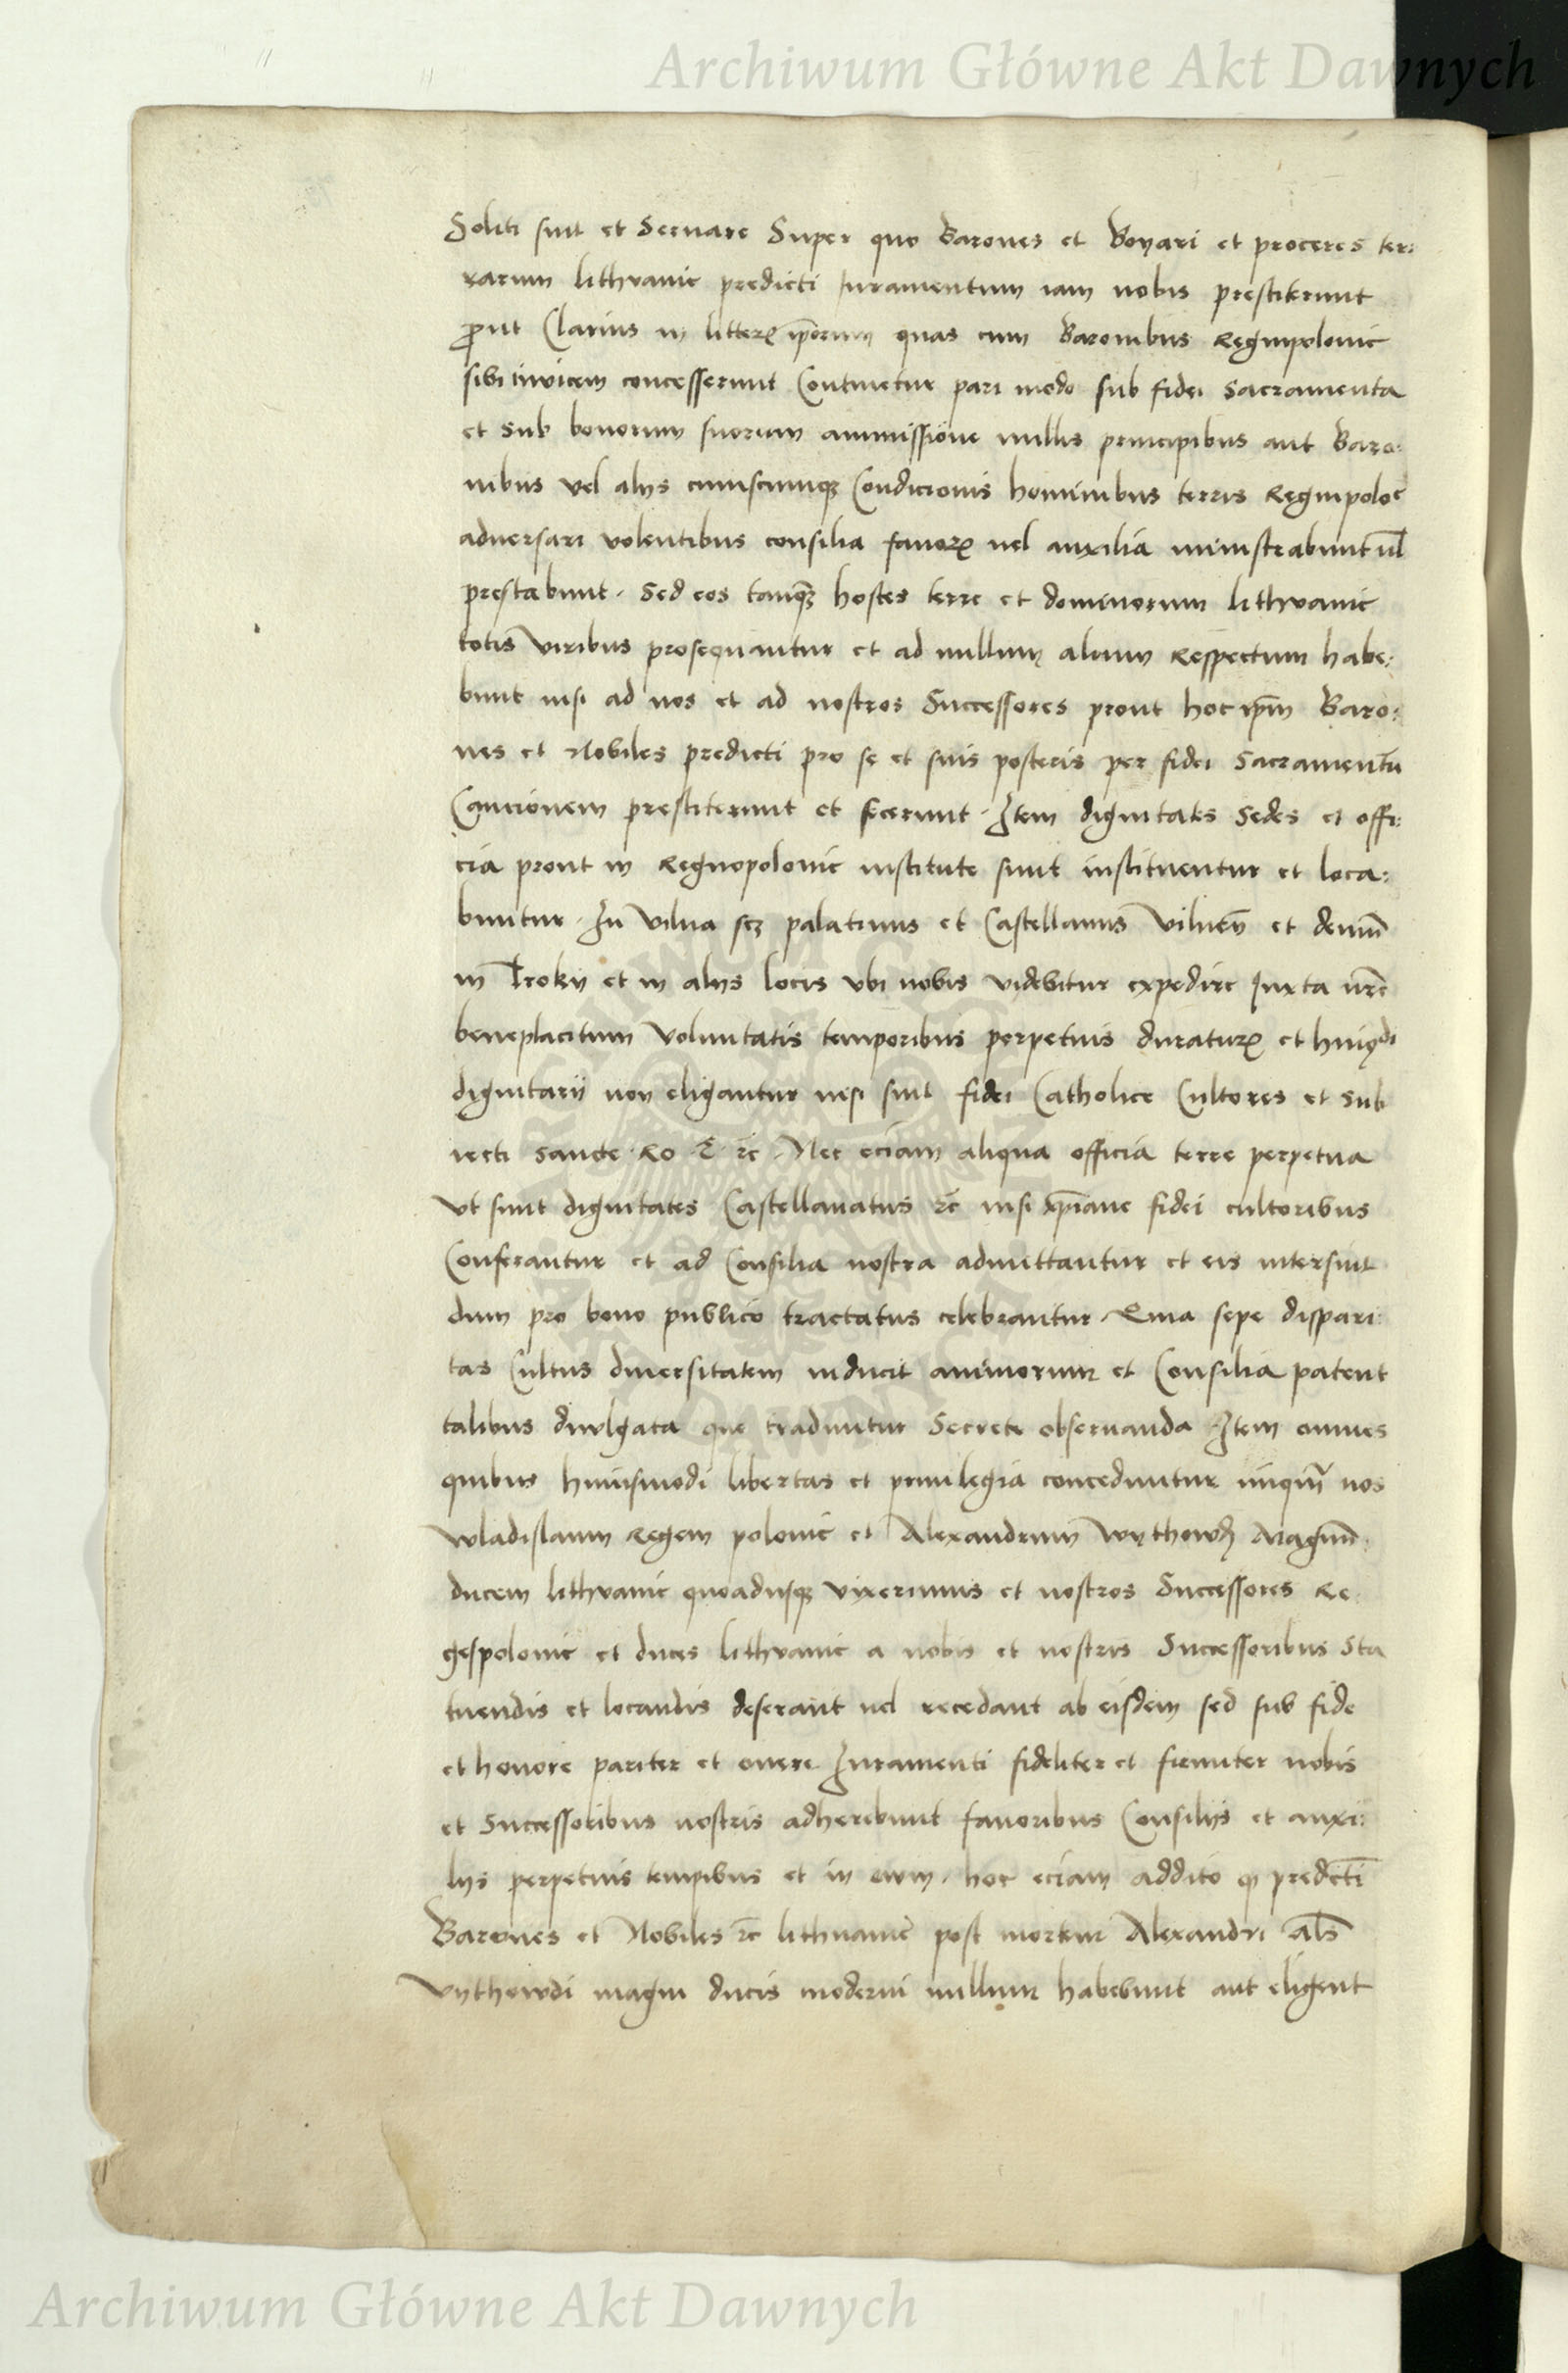 Archiwum Główne Akt Dawnych
Soliti sint et Seruare Super quo Barones et Boyari et proceres ter:
rarum lithvanie predicti Iuramentum iam nobis prestiterunt
ꝓut Clarius in litterꝭ ip̄orum quas cum Baronibus Regnipolonie
sibi invicem concesserunt Continetur pari modo sub fidei Sacramenta
et sub bonorum suorum ammissione nullis principibus aut Baro:
nibus vel alys cuiuscumqꝫ Condicionis hominibus terris Regnipoloe
aduersari volentibus consilia fauorꝭ uel auxilia ministrabunt ul̄
prestabunt. Sed eos tanqꝫ hostes terre et dominorum lithvanie
totis viribus prosequantur et ad nullum alium Respectum habe:
bunt nisi ad nos et ad nostros Successores prout hoc ip̄m Baro:
nes et Nobiles predicti pro se et suis posteris per fidei Sacramentū
Caucionem prestiterunt et fecerunt. Item dignitates Sedes et offi:
cia prout in Regnopolonie institute sunt instituentur et loca:
buntur. In Vilna scꝫ palatinus et Castellanus Vilnēn et demū
in Troky et in alys locis vbi nobis videbitur expedire Iuxta nr̄e
beneplacitum Voluntatis temporibus perpetuis duraturꝭ et huiꝯdi
dignitarii non eligantur nisi sint fidei Catholice Cultores et sub
iecti sancte Ro. E. ꝛc̄. Nec eciam aliqua officia terre perpetua
vt sunt dignitates Castellanatus ꝛc̄ nisi xp̄iane fidei cultoribus
Conferantur et ad Consilia nostra admittantur et eis intersint
dum pro bono publico tractatus celebrantur. Quia sepe dispari:
tas Cultus diuersitatem inducit animorum et Consilia patent
talibus divlgata que traduntur Secrete obseruanda Item omnes
quibus huiusmodi libertas et priuilegia conceduntur nūquā nos
Wladislaum Regem polonie et Alexandrum Wythowd Magnū
ducem lithvanie quoadusqꝫ vixerimus et nostros Successores Re
gespolonie et duces lithvanie a nobis et nostris Successoribus Sta
tuendis et locandis deserant uel recedant ab eisdem sed sub fide
et honore pariter et onere Iuramenti fideliter et firmiter nobis
et Successoribus nostris adherebunt fauoribus Consilys et auxi:
lys perpetuis temp̄ibus et in ewm. hoc eciam addito ꝙ predicti
Barones et Nobiles ꝛc̄ lithuanie post mortem Alexandri al̄s
Vythowdi magni ducis moderni nullum habebunt aut eligent
Archiwum Główne Akt Dawnych